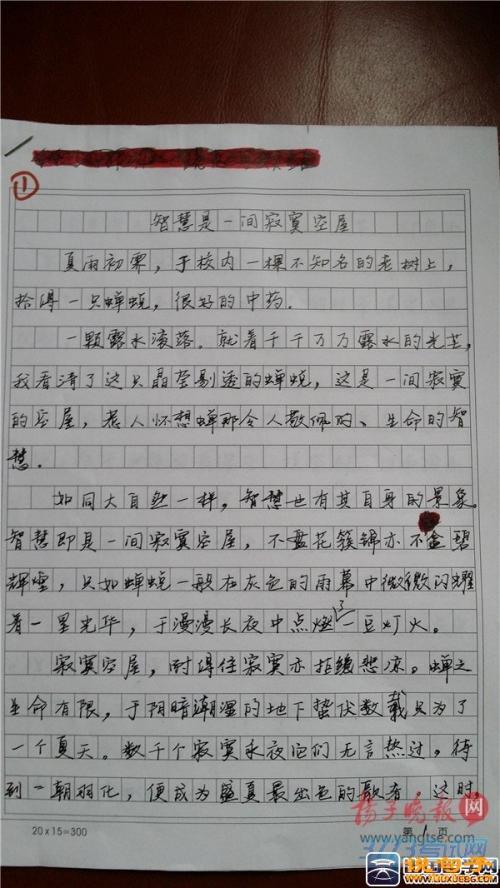 ①
智慧是一间寂寞空屋
夏雨初霁，于校内一棵不知名的老树上，
拾得一只蝉蜕，很好的中药。
一颗露水滚落。就着千千万万露水的光芒，
我看清了这只晶莹剔透的蝉蜕，这是一间寂寞
的空屋，惹人怀想蝉那令人敬佩的、生命的智
慧.
如同大自然一样，智慧也有其自身的景象。
智慧即是一间寂寞空屋，不盛花簇锦亦不金碧
辉煌，只如蝉蜕一般在灰色的雨幕中微微闪耀
着一星光华，于漫漫长夜中点燃了一豆灯火。
寂寞空屋，耐得住寂寞亦拒绝悲凉。蝉之
生命有限，于阴暗潮湿的地下蛰伏数载只为了
一个夏天。数千个寂寞永夜它们无言熬过，待
到一朝羽化，便成为盛夏最出色的歌者，这时
20×15=300
第 1 页
扬子晚报网
www.yangtse.com